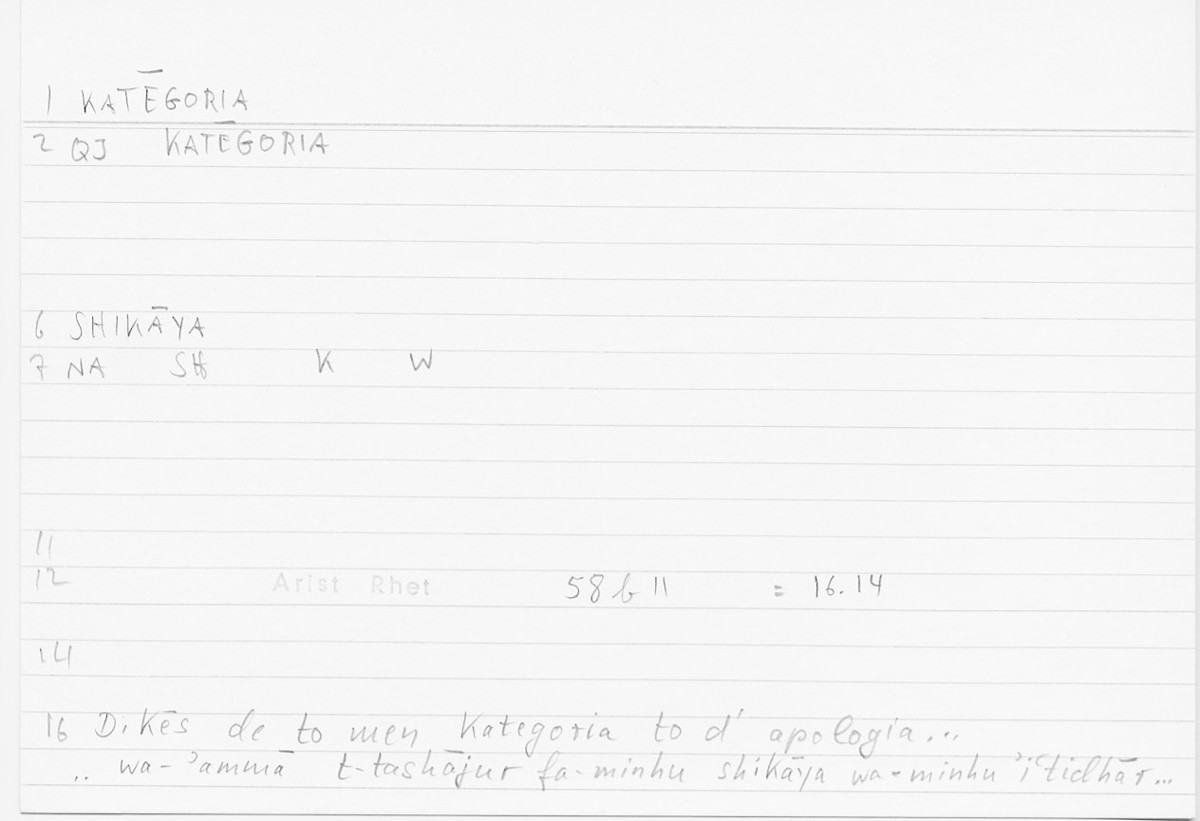 1 KATĒGORIA
2 QJ KATĒGORIA
6 SHIKĀYA
7 NA SH K W
11
12 Arist Rhet 58 b 11 = 16.14
14
16 Dikēs de to men Katēgoria to d' apologia...
.. wa-ʾammā t-tashājur fa-minhu shikāya wa-minhu ʾiʿtidhār...